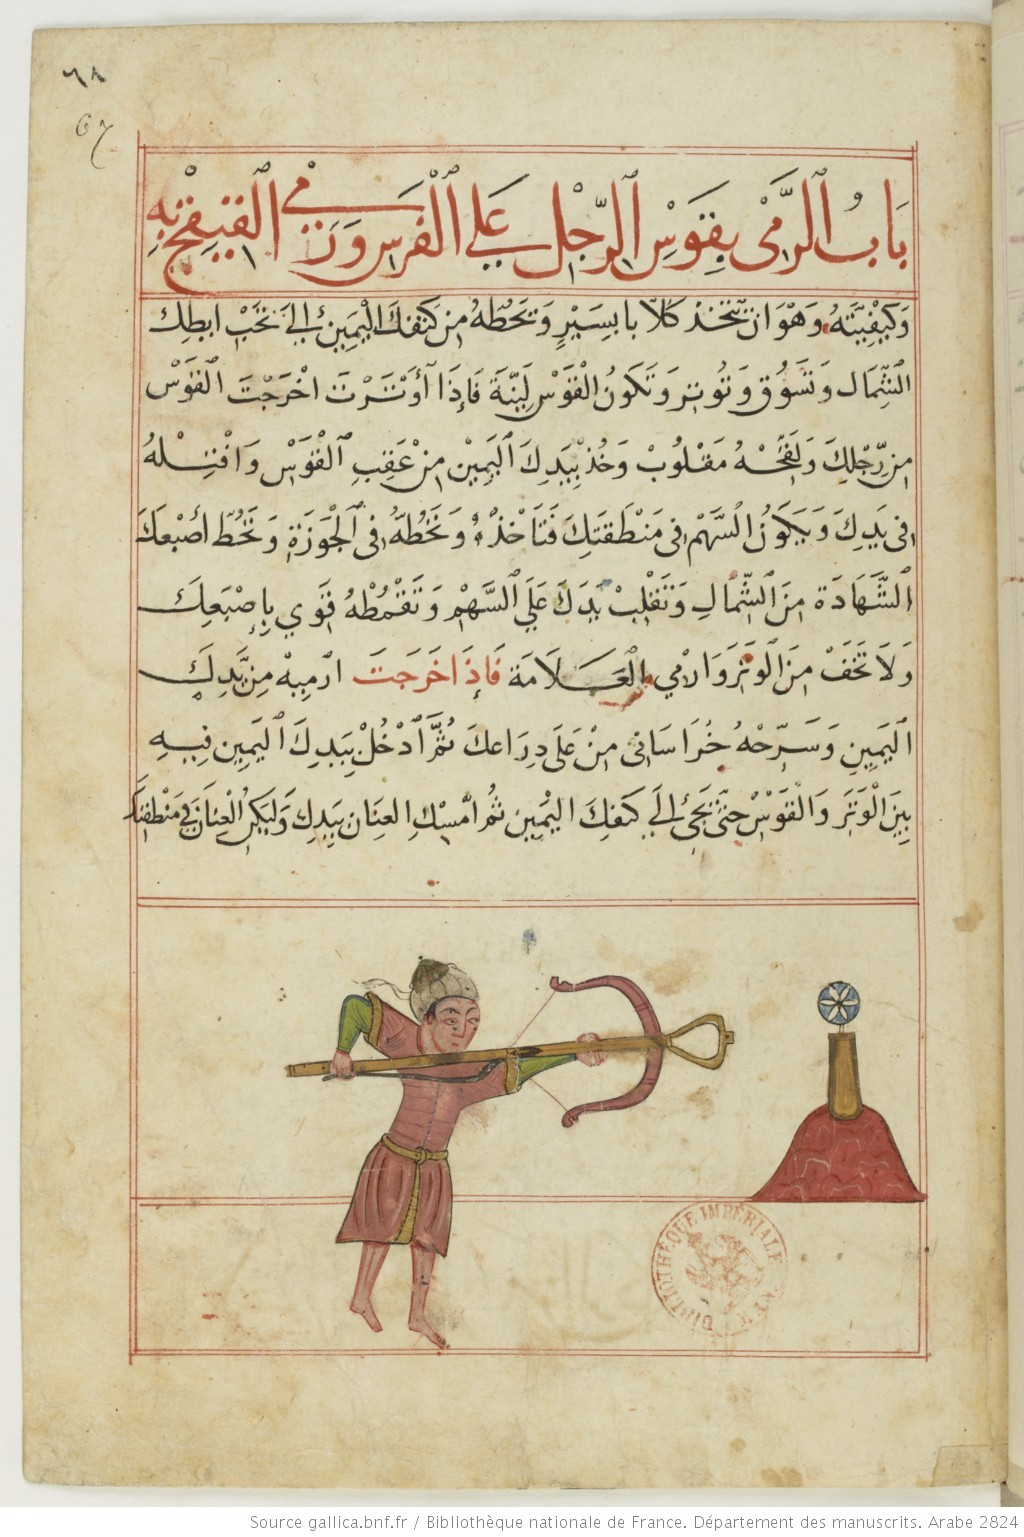 ٦٨
بَابُ الرَّمْي بِقَوْسِ الرِّجْلِ عَلي الْفَرَسِ وَرَمْي القيقج بِهِ
وَكَيْفِيَّتَهُ وَهْوَ انْ تتّخذ كلّابا بسَيْرٍ وَتَحُطّهُ مِن كَتفكَ الْيَمِينْ إِليَ تَحْتْ ابطِكْ
الشِّمَال وَتَسُوُق وَتُوتِر وَتَكونُ الْقَوْس لَيِّنَة فَإِذَا أَوْتَرْتَ اخْرَجْتَ القَوْسْ
مِن رِّجْلِكَ وَلَفَحْتَهُ مَقْلُوبْ وَخُذْ بِيَدِكَ اليَمِيْن مِنْ عَقِبِ الْقَوْسْ وَافْتِلْهُ
فِى يَدِكَ وَيَكَوُنُ السَّهْمْ فِى مَنْطَقَتِكَ فَتَاْخْذْهُ وَتَحُطّهُ فِى الْجَوزَةِ وَتَحُط أصْبعَكَ
الشَّهَادَة مِنَ الشِّمَالِ وَتَقْلِبْ يَدَكَ عَلَي السَّهْمْ وَتَقْمُطْهُ قَوي بِإِصْبَعِكَ
وَلَا تَخَفْ مِنَ الوَتَر وَارْمي العَلَامَة فَإِذَا خَرَجتَ ارْمِيهْ مِن يَدِكَ
اليَمِينِ وَسَرّحْهُ خُرَاسَانى مِنْ عَلَى دِرَاعكَ ثُمَّ ادْخُلْ بِيَدِكَ اليَمِين فِيهِ
بَيْنَ الْوَتَرَ وَالْقَوْسْ حَتّى تَجِئ إِليَ كَتفِكَ اليَمْين ثُم امْسِكِ العِنَان بِيَدِكَ وَليَكُن الْعِنَان فِي مَنْطِقتِكَ
BIBLIOTHÈQUE IMPÉRIALE
Source gallica.bnf.fr / Bibliothèque nationale de France. Département des manuscrits. Arabe 2824